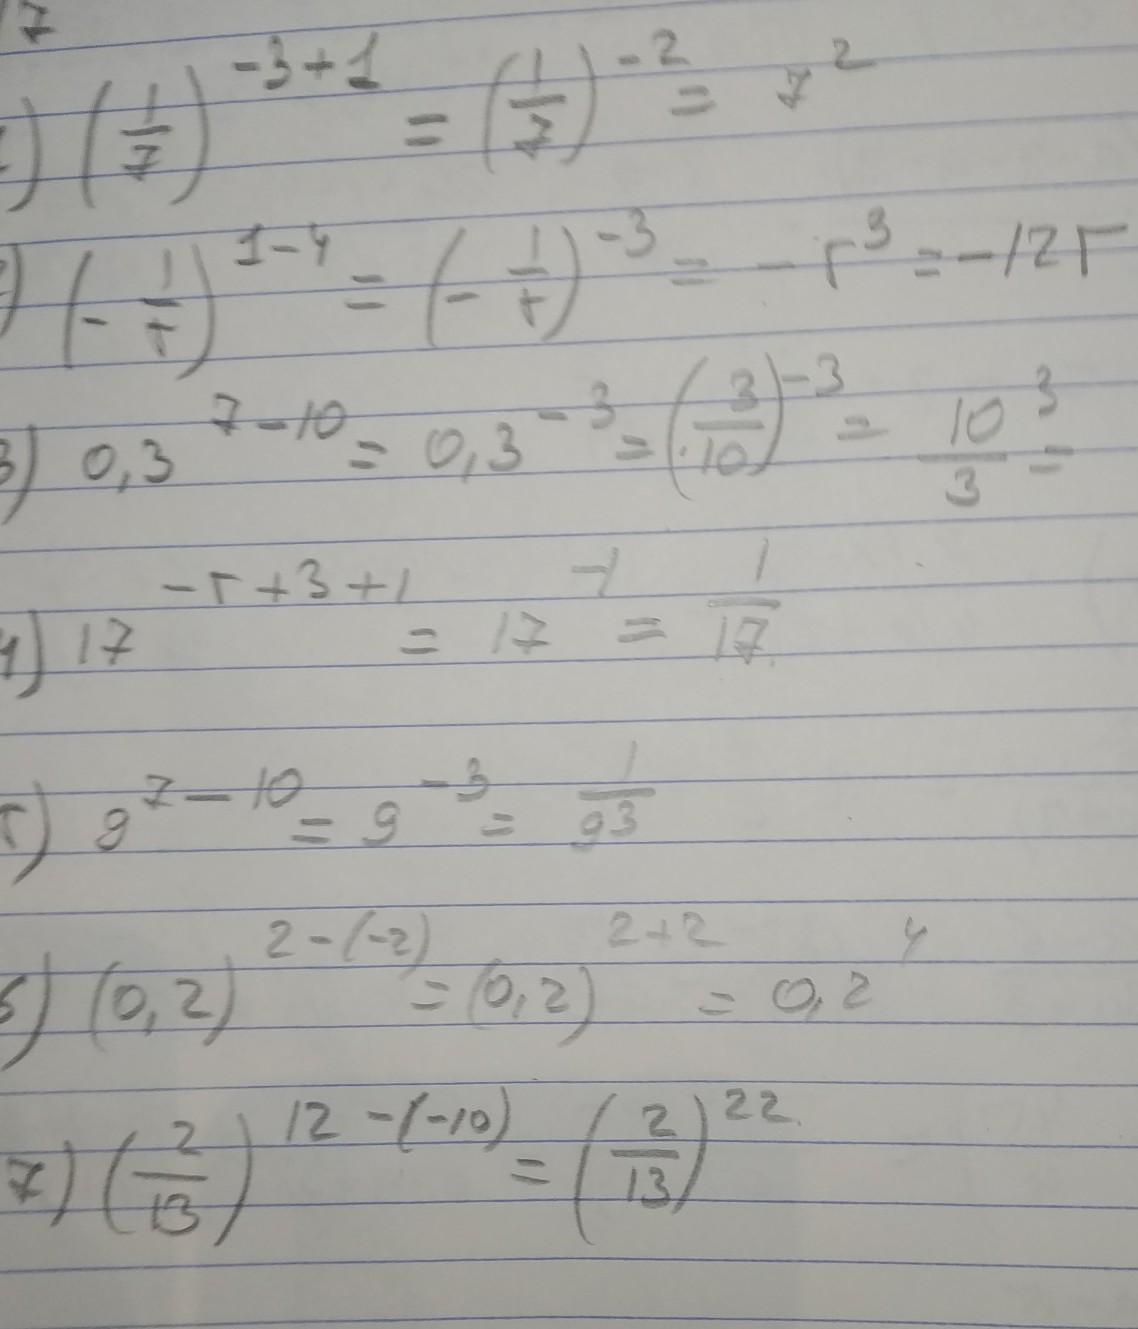 7
1) (1/7)^(-3+1) = (1/7)^(-2) = 7^2
2) (-1/5)^(1-4) = (-1/5)^(-3) = -5^3 = -125
3) 0,3^(7-10) = 0,3^(-3) = (3/10)^(-3) = 10/3^3 =
4) 17^(-5+3+1) = 17^(-1) = 1/17
5) 9^(7-10) = 9^(-3) = 1/9^3
6) (0,2)^(2-(-2)) = (0,2)^(2+2) = 0,2^4
7) (2/13)^(12-(-10)) = (2/13)^22